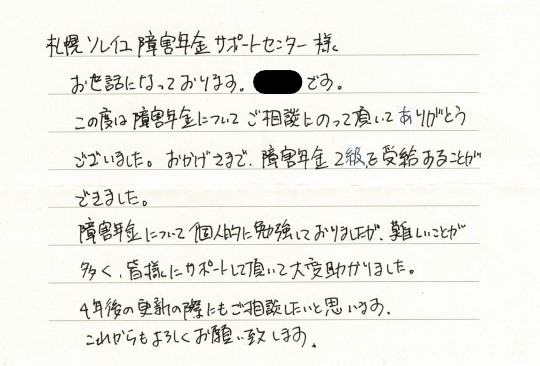 札幌ソレイユ障害年金サポートセンター様
お世話になっております。です。
この度は障害年金についてご相談にのって頂いてありがとう
ございました。おかげさまで、障害年金2級を受給することが
できました。
障害年金について個人的に勉強しておりましたが、難しいことが
多く、皆様にサポートして頂いて大変助かりました。
4年後の更新の際にもご相談したいと思います。
これからもよろしくお願い致します。